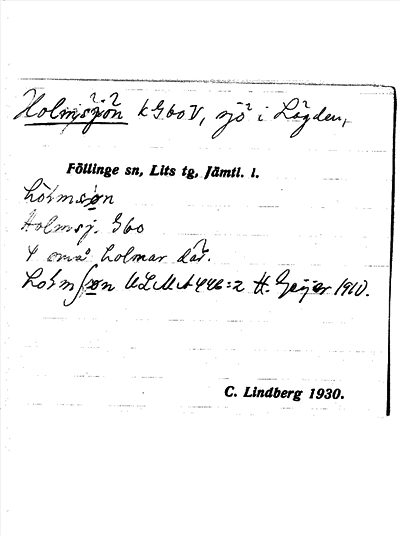 Holmsjön k G60V, sjö i Lögden,
Föllinge sn, Lits tg, Jämtl. l.
hòḷmsøn
Holmsj. G60
4 små holmar där.
hoḷmʃøn ULMA 446:2 H. Geijer 1910.
C. Lindberg 1930.